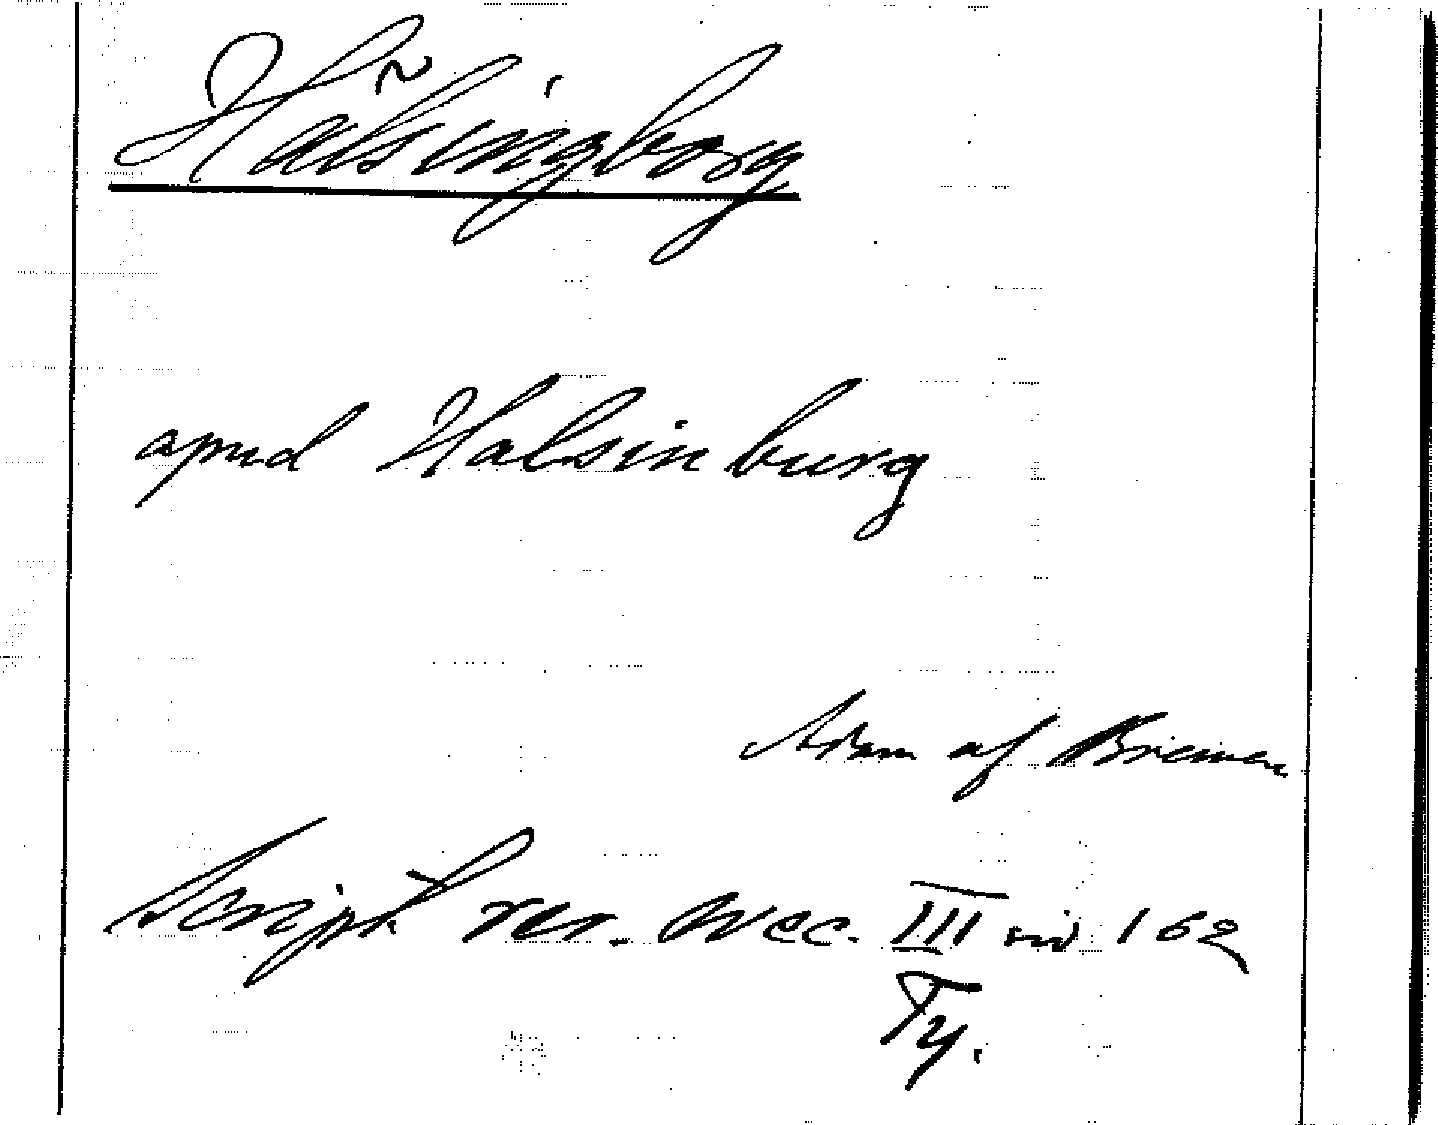 Hälsingborg
apud Halsinburg
Adam af Bremen
Script rer. svec. III sid 162
Ty.